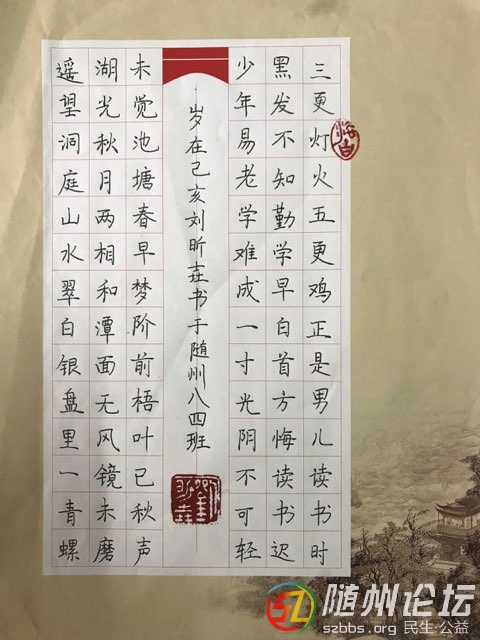 三更灯火五更鸡正是男儿读书时
黑发不知勤学早白首方悔读书迟
少年易老学难成一寸光阴不可轻
岁在己亥刘昕垚书于随州八四班
未觉池塘春早梦阶前梧叶已秋声
湖光秋月两相和潭面无风镜未磨
遥望洞庭山水翠白银盘里一青螺
随州论坛
szbbs.org 民生·公益